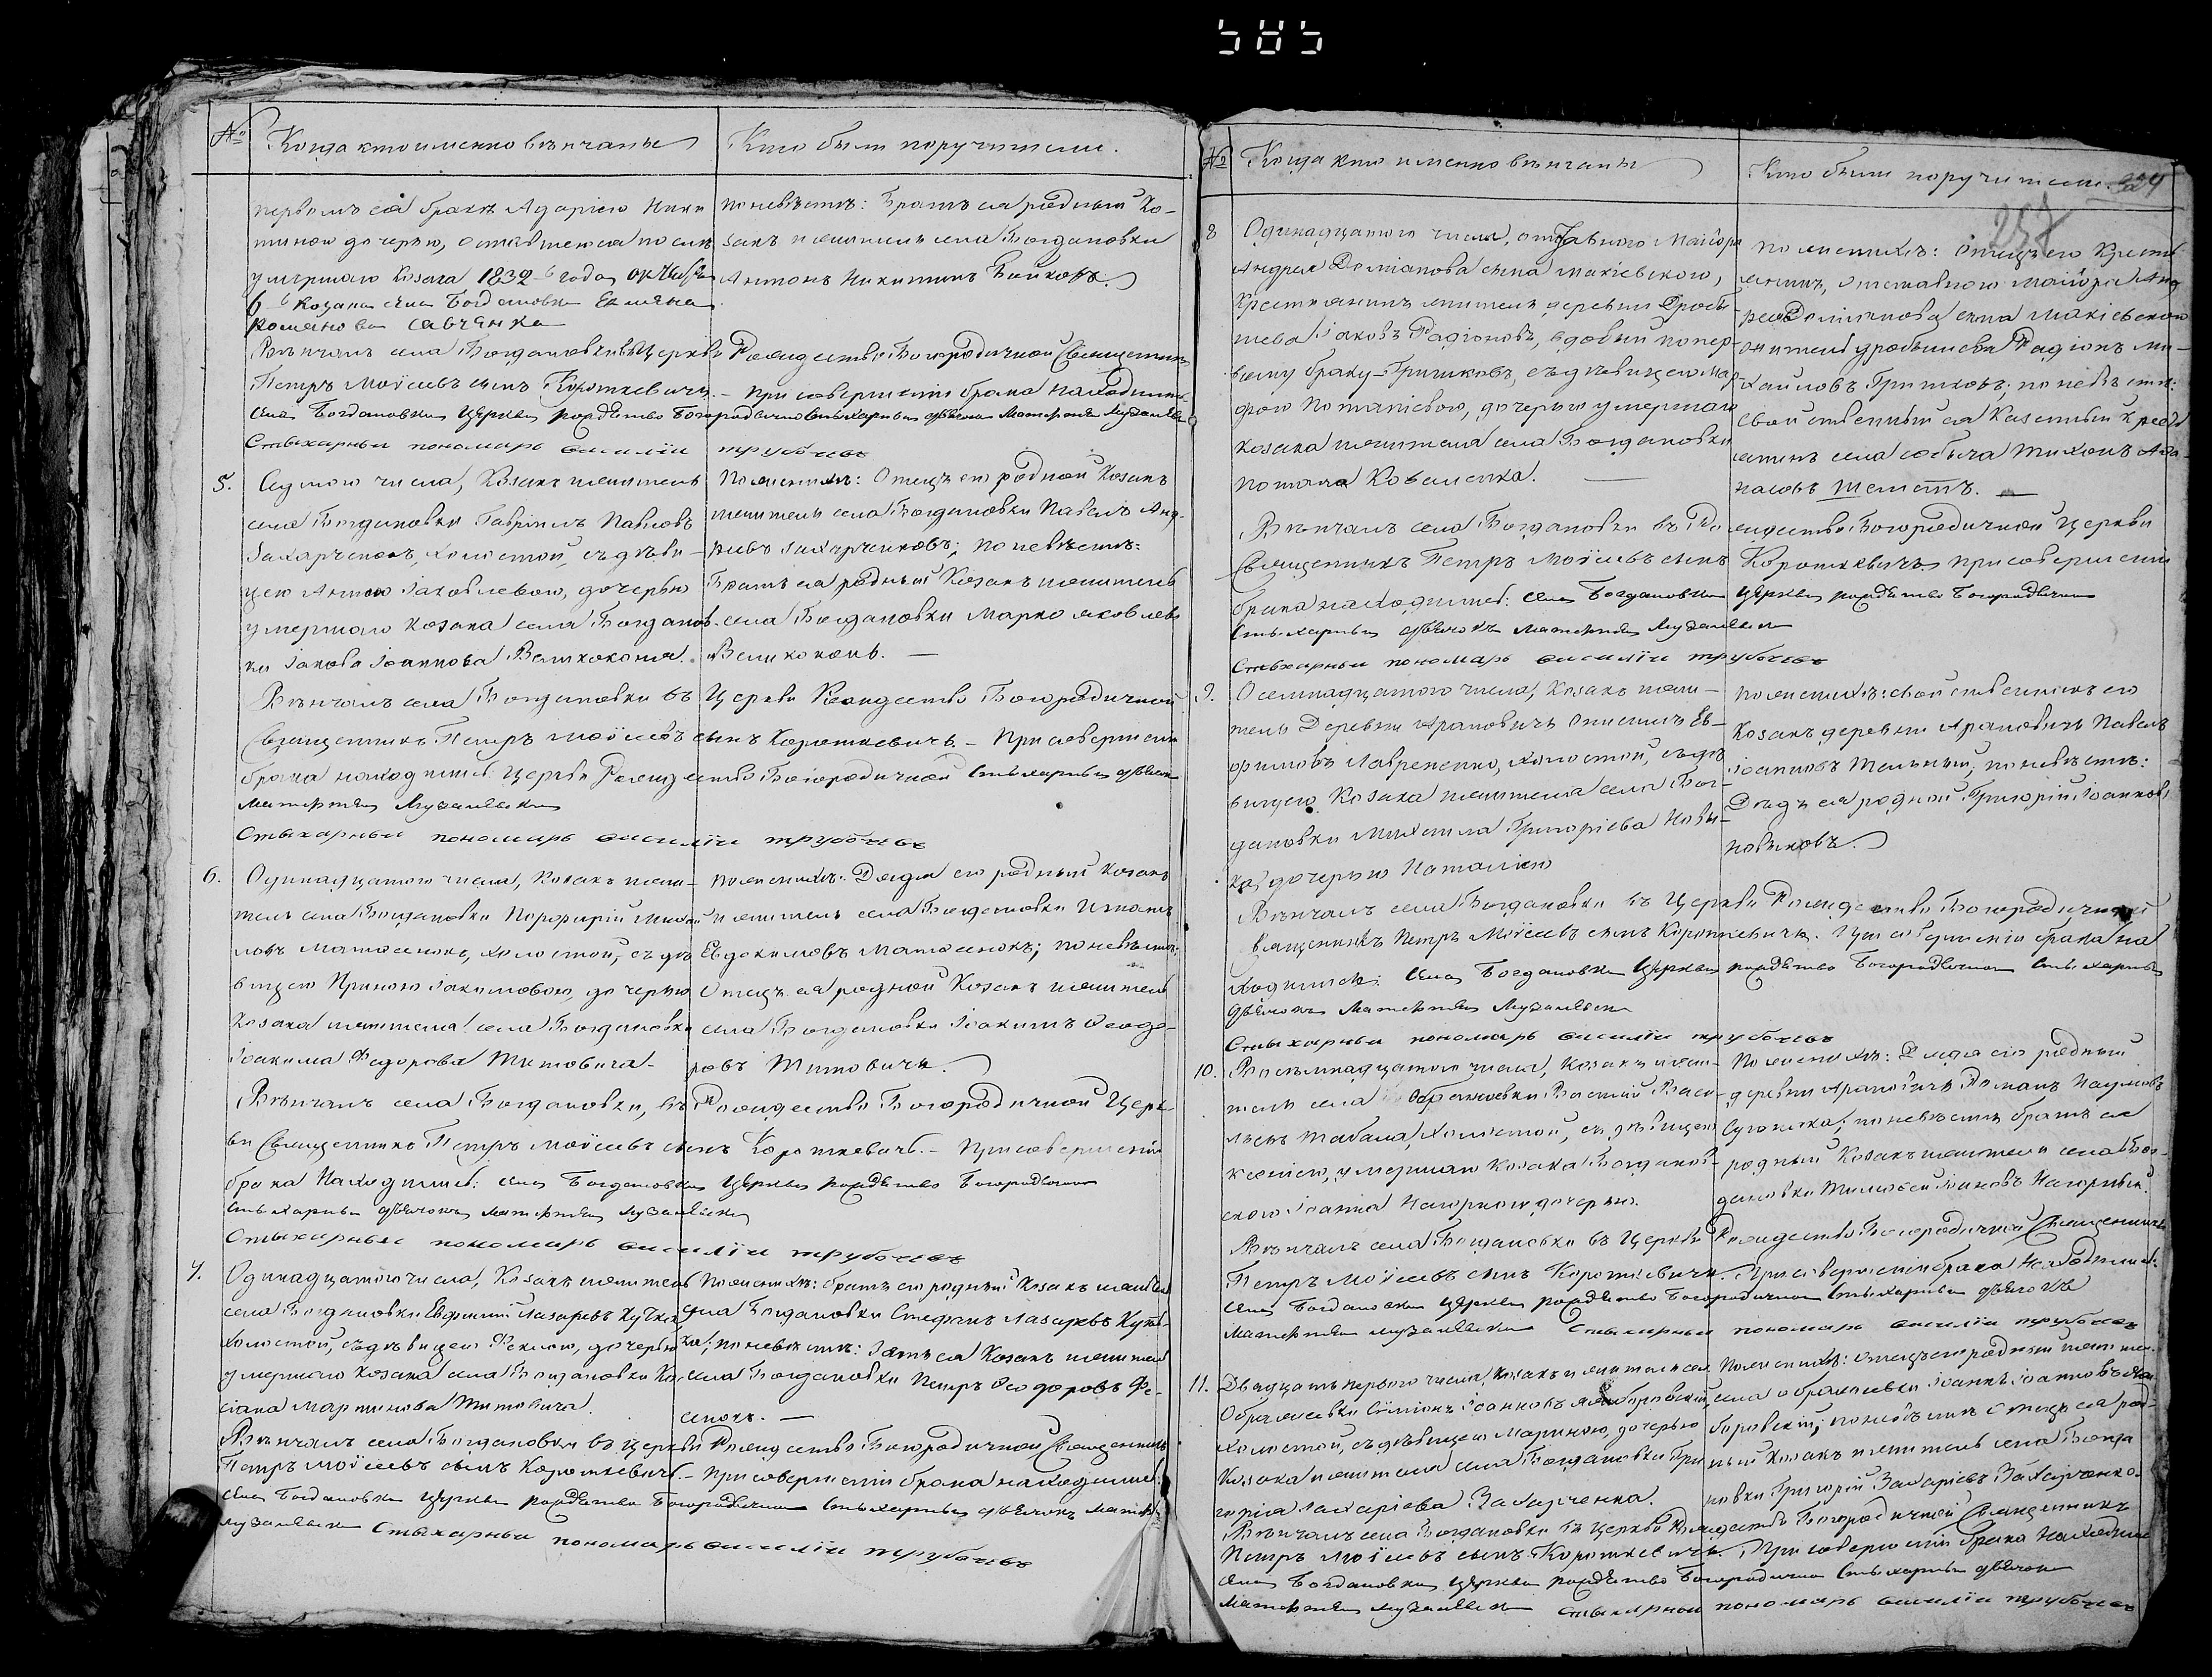 585
№ Когда кто именно венчаны
Кто были поручители.
первымъ ея бракѣ Адаріею Ники
тиною дочерью, оставшеюся послѣ
умершаго козака 1832-го года октября
6-го козака села Богдановки Емельяна
Романова Савченка
по невѣстѣ: Братъ ея родный Ко-
закъ и житель села Богдановки
Антонъ Никитинъ
Вѣнчалъ села Богдановки въ Церкви Рождество Богородичной Священникъ
Петръ Моѵсеевъ сынъ Короткевичъ. – При совершеніи брака находились
села Богдановки Церкви рождество Богородичной стыхарный дьячокъ
Стыхарный пономарь Василіи трубачевъ
5. Седмого числа, Козакъ житель
села Богдановки Гавріилъ Павловъ
Захарченокъ, холостой, съ дѣви-
цею Анною Іаковлевою, дочерью
умершаго козака села Богданов-
ки Іакова Іоаннова Великоконя.
По женихѣ: Отецъ его родной Козакъ
житель села Богдановки Павелъ
Захарченковъ; по невѣстѣ:
Братъ ея родный Козакъ житель
села Богдановки Марко Яковлевъ
Великоконь. —
Вѣнчалъ села Богдановки въ Церкви Рождество Богородичной
Священникъ Петръ Моѵсеевъ сынъ Короткевичъ. – При совершеніи
брака находились: Церкви Рождество Богородичной стыхарный дьячокъ
Стыхарный пономарь Василіи трубачевъ
6. Одинадцатого числа, Козакъ жи-
тель села Богдановки Порфирій Михаи
ловъ Матосенокъ, холостой, съ дѣ
вицею Ириною Іакимовою, дочерью
козака жителя села Богдановки
Іоакима Федорова Титовича.
По женихѣ: Дядя его родный Козакъ
житель села Богдановки Игнатъ
Евдокимовъ Матосенокъ; по невѣстѣ:
Отецъ ея родной Козакъ житель
села Богдановки Іоакимъ Феодо-
ровъ Титовичъ.
Вѣнчалъ села Богдановки, въ Рождество Богородичной Церк-
ви Священникъ Петръ Моѵсеевъ сынъ Короткевичъ. – При совершеніи
брака Находились: села Богдановки Церкви рождество Богородичной
стыхарный дьячокъ
Стыхарный пономарь Василіи трубачевъ
7. Одинадцатого числа, Козакъ житель
села Богдановки Евфимій Лазаревъ
холостой, съ дѣвицею Феклою, дочерью
умершаго козака села Богдановки Ка
сіана Мартинова Титовича.
По женихѣ: братъ его родный Козакъ
села Богдановки Стефанъ Лазаревъ
ка; по невѣстѣ: Зять ея Козакъ житель
села Богдановки Петръ Феодоровъ Фе-
сенокъ. —
Вѣнчалъ села Богдановки въ Церкви Рождество Богородичной Священникъ
Петръ Моѵсеевъ сынъ Короткевичъ. – При совершеніи брака находились:
села Богдановки Церкви рождество Богородичной стыхарный дьячокъ
Стыхарный пономарь Василіи трубачевъ
№ Когда кто именно вѣнчаны
Кто были поручители.
257
8 Одинадцатого числа, отставного Маіора
Андрея Деміанова сына Макіевского,
крестьянинъ житель деревни Дробы
шева Іаковъ Радіоновъ, вдовый по пер-
вому браку – Гришковъ, съ дѣвицею
Потапіевою, дочерью умершаго
козака жителя села Богдановки
Потапа Коваленка. —
По женихѣ: отецъ его крестья
янинъ, отставного маіора Анд
рея Деміанова сына Макіевского
житель Дробышева Радіонъ Ми-
хаиловъ Гришковъ; по невѣстѣ:
свойственный ея Казенный крест
янинъ села Собыча Тихонъ Афа-
насовъ
Вѣнчалъ села Богдановки въ Рождество Богородичной Церкви
Священникъ Петръ Моѵсеевъ сынъ Короткевичъ. При совершеніи
брака находились: села Богдановки Церкви рождество Богородичной
стыхарный дьячокъ
Стыхарный пономарь Василіи трубачевъ
9. Осемнадцатого числа, Козакъ жи-
тель Деревни Араповичъ Онисимъ Ев-
фимовъ Лавренко, холостой, съ дѣ
вицею Козака жителя села Бог-
дановки Михаила Григоріева Новы-
ка, дочерью Наталіею
По женихѣ: свойственникъ его
Козакъ деревни Араповичъ Павелъ
Іоанновъ; по невѣстѣ:
Дядъ ея родной Григорій Іоанновъ
Новыковъ.
Вѣнчалъ села Богдановки въ Церкви Рождество Богородичной
Священникъ Петръ Моѵсеевъ сынъ Короткевичъ. При совершеніи брака на
ходились: села Богдановки Церкви рождество Богородичной стыхарный
дьячокъ
Стыхарный пономарь Василіи трубачевъ
10. Восемнадцатого числа, Козакъ жи-
тель села Ображеевки Василій Васи-
льевъ Табала, холостой, съ дѣвицею
Ксеніею, умершаго Козака Богданов-
ского Іоанна Нагорного дочерью.
По женихѣ: Дядя его родный
деревни Араповичъ Романъ Наумовъ
по невѣстѣ братъ ея
родный Козакъ житель села Бог-
дановки Тимофей Іоановъ Нагорный.
Вѣнчалъ села Богдановки въ Церкви Рождество Богородичной Священникъ
Петръ Моѵсеевъ сынъ Короткевичъ. При совершеніи брака Находились:
села Богдановки Церкви рождество Богородичной стыхарный дьячокъ
Стыхарный пономарь Василіи трубачевъ
11. Двадцать первого числа, Козакъ житель села
Ображеевки Сѵміонъ Іоанновъ
холостой, съ дѣвицею Мариною, дочерью
Козака жителя села Богдановки Гри
горія Захаріева Захарченка.
По женихѣ: отецъ его родный житель
села Ображеевки Іоаннъ Іоанновъ
по невѣстѣ Отецъ ея род-
ный Козакъ житель села Богда
новки Григорій Захаріевъ Захарченко.
Вѣнчалъ села Богдановки въ Церкви Рождество Богородичной Священникъ
Петръ Моѵсеевъ сынъ Короткевичъ. При совершеніи брака Находились
села Богдановки Церкви рождество Богородичной стыхарный дьячокъ
стыхарный пономарь Василіи трубачевъ